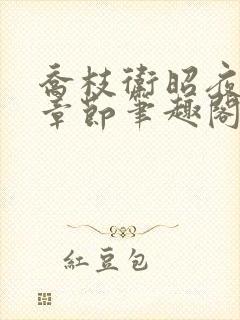 喬枝衛昭夜
章節筆趣閣
紅豆包